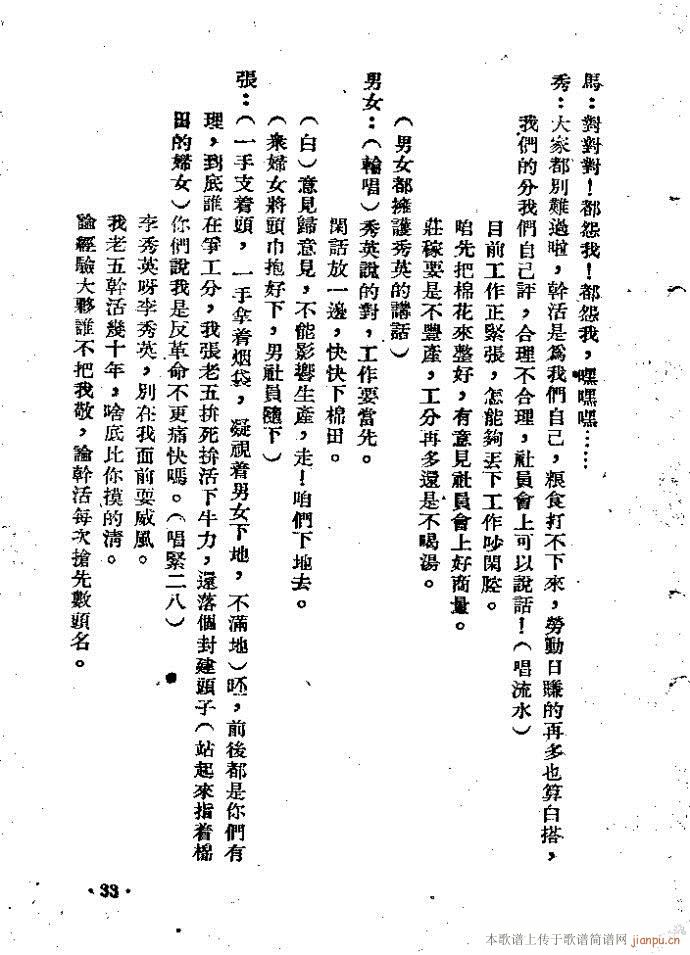 馬：對對對！都怨我！都怨我，嘿嘿嘿……
秀：大家都別難過啦，幹活是爲我們自己，粮食打不下來，勞動日賺的再多也算白搭，
我們的分我們自己評，合理不合理，社員會上可以說話！（唱流水）
目前工作正緊張，怎能夠丟下工作吵閑腔。
咱先把棉花來整好，有意見社員會上好商量。
莊稼要是不豐產，工分再多還是不喝湯。
（男女都擁護秀英的講話）
男女：（輪唱）秀英說的對，工作要當先。
閑話放一邊，快快下棉田。
（白）意見歸意見，不能影響生產，走！咱們下地去。
（衆婦女將頭巾抱好下，男社員隨下）
張：（一手支着頭，一手拿着烟袋，凝視着男女下地，不滿地）呸，前後都是你們有
理，到底誰在爭工分，我張老五拚死拚活下牛力，還落個封建頭子（站起來指着棉
田的婦女）你們說我是反革命不更痛快嗎。（唱緊二八）
李秀英呀李秀英，別在我面前耍威風。
我老五幹活幾十年，啥底比你摸的清。
論經驗大夥誰不把我敬，論幹活每次搶先數頭名。
·33·
本歌谱上传于歌谱简谱网
jianpu.cn